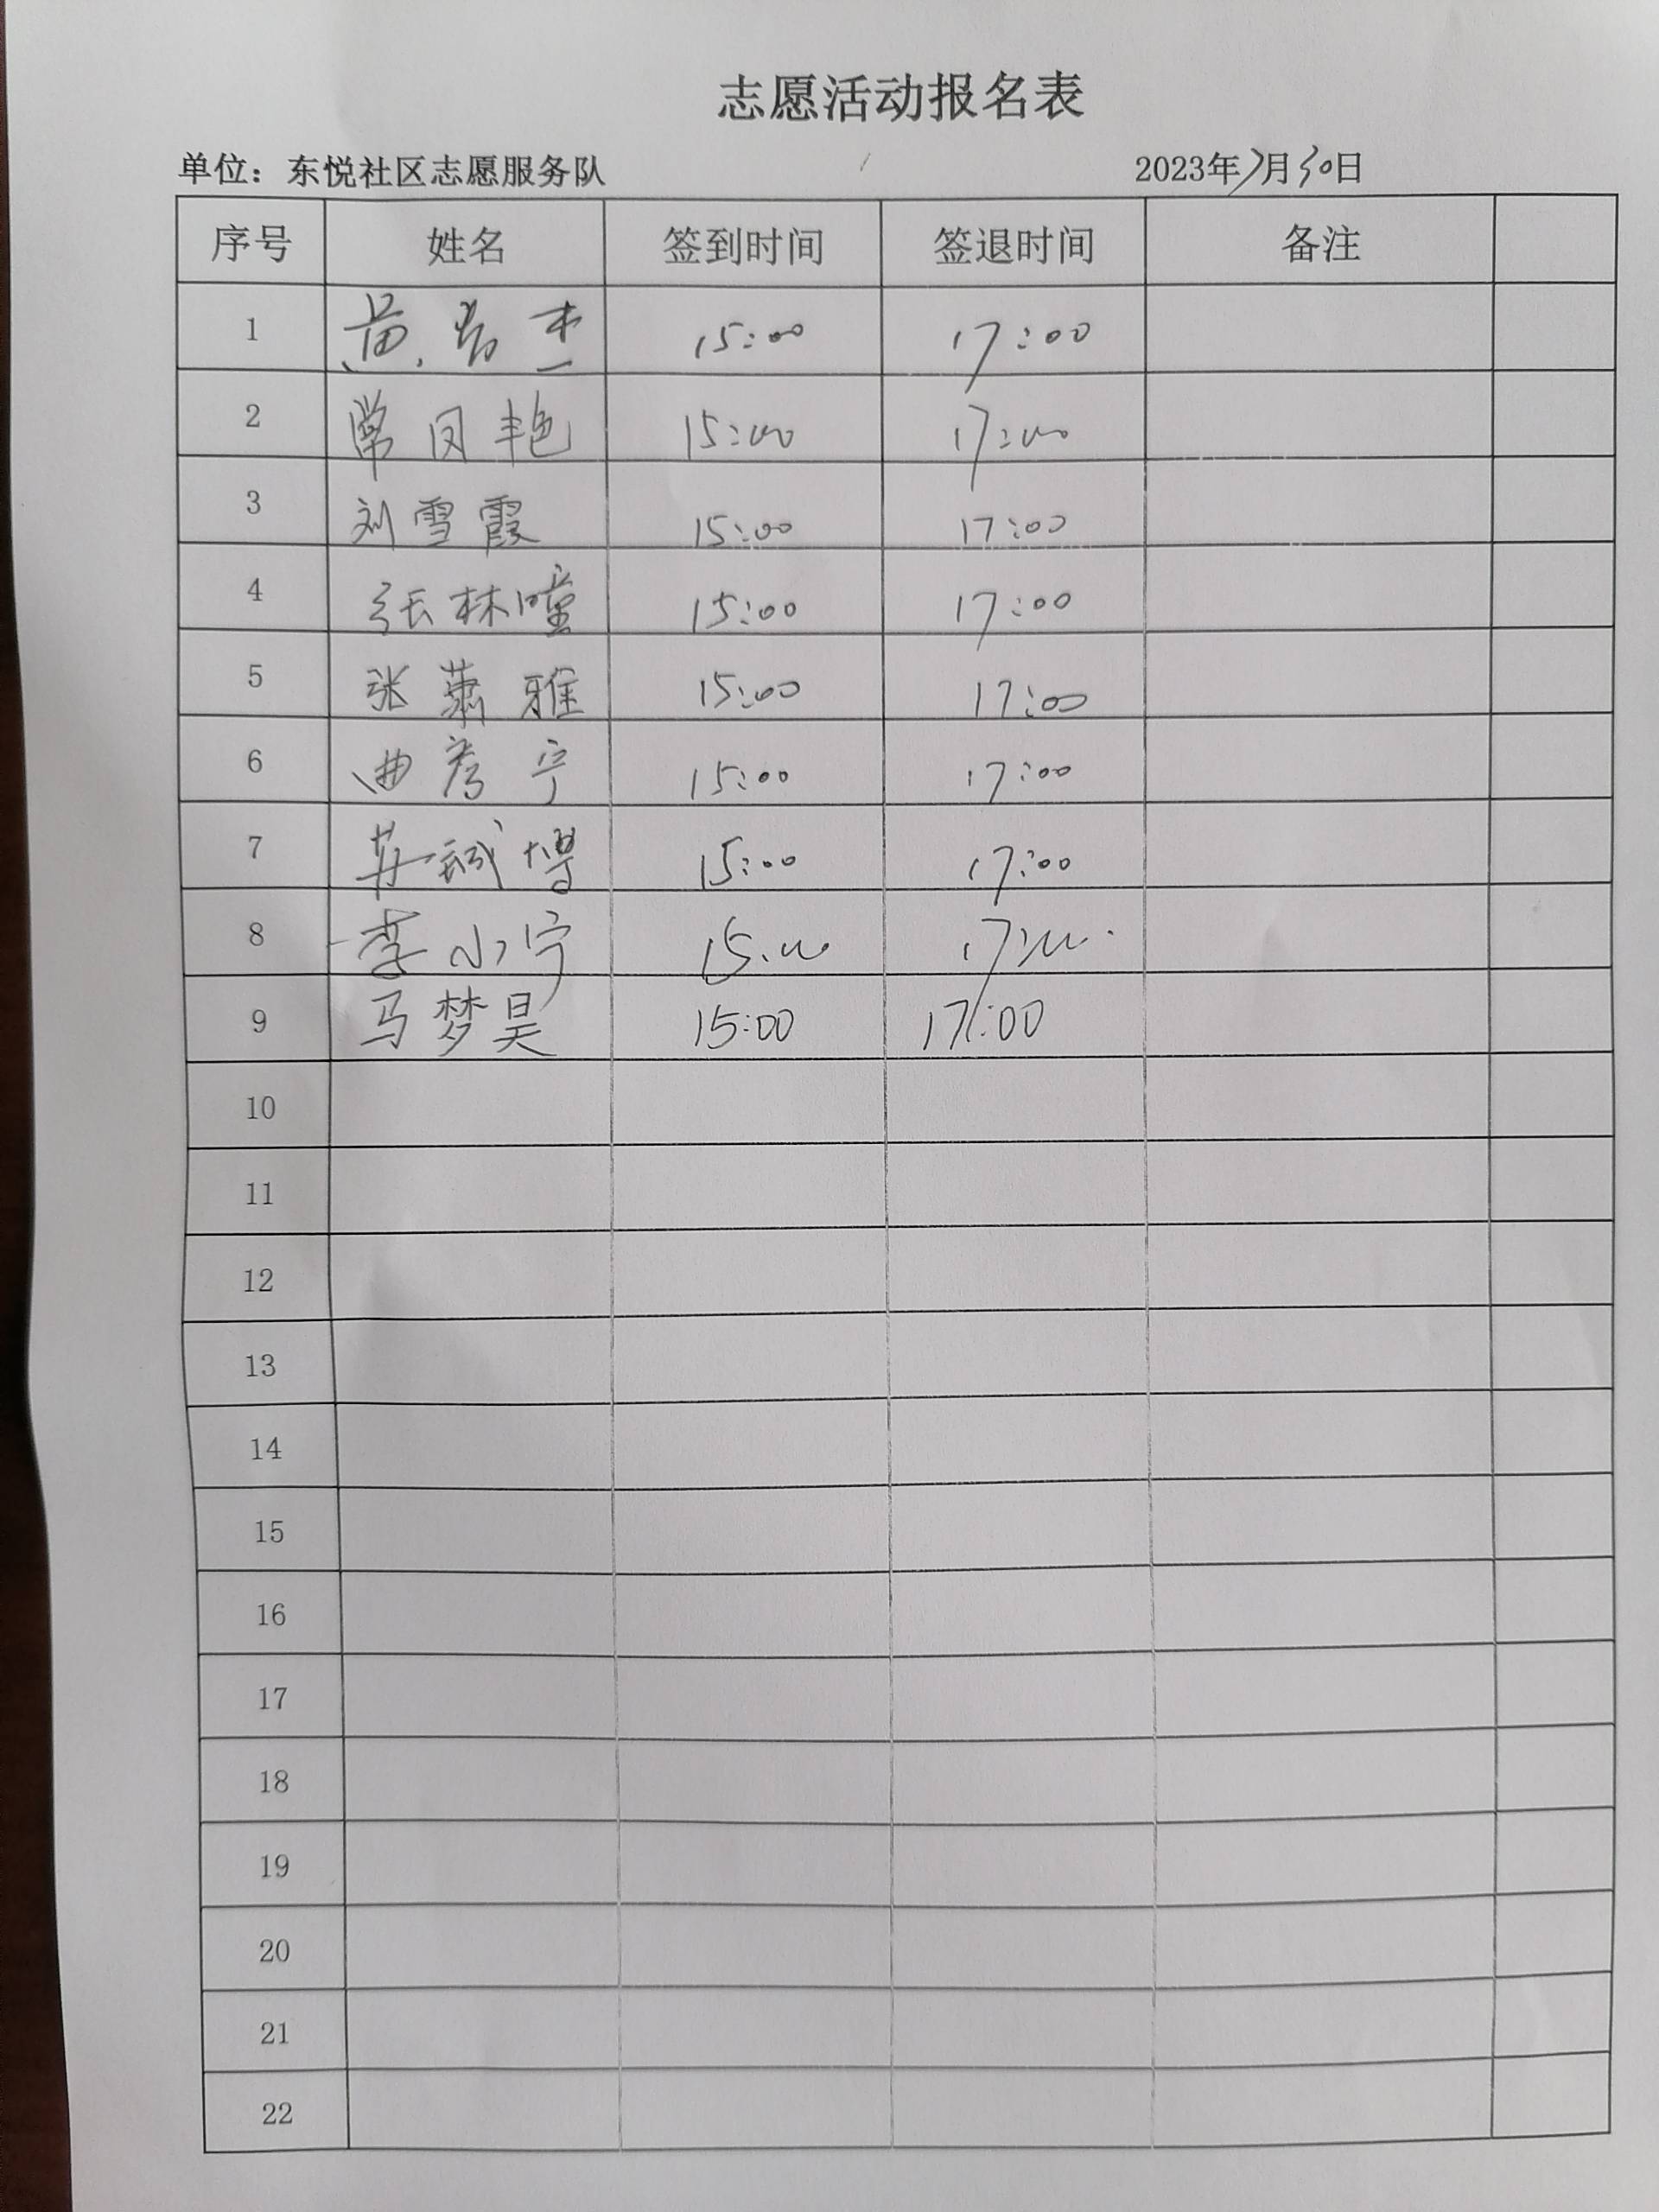 志愿活动报名表
单位：东悦社区志愿服务队 2023年7月30日
序号 姓名 签到时间 签退时间 备注
1 15:00 17:00
2 常凤艳 15:00 17:00
3 刘雪霞 15:00 17:00
4 张林曈 15:00 17:00
5 张萧雅 15:00 17:00
6 曲彦宁 15:00 17:00
7 苏诚博 15:00 17:00
8 李小宁 15:00 17:00
9 马梦昊 15:00 17:00
10
11
12
13
14
15
16
17
18
19
20
21
22